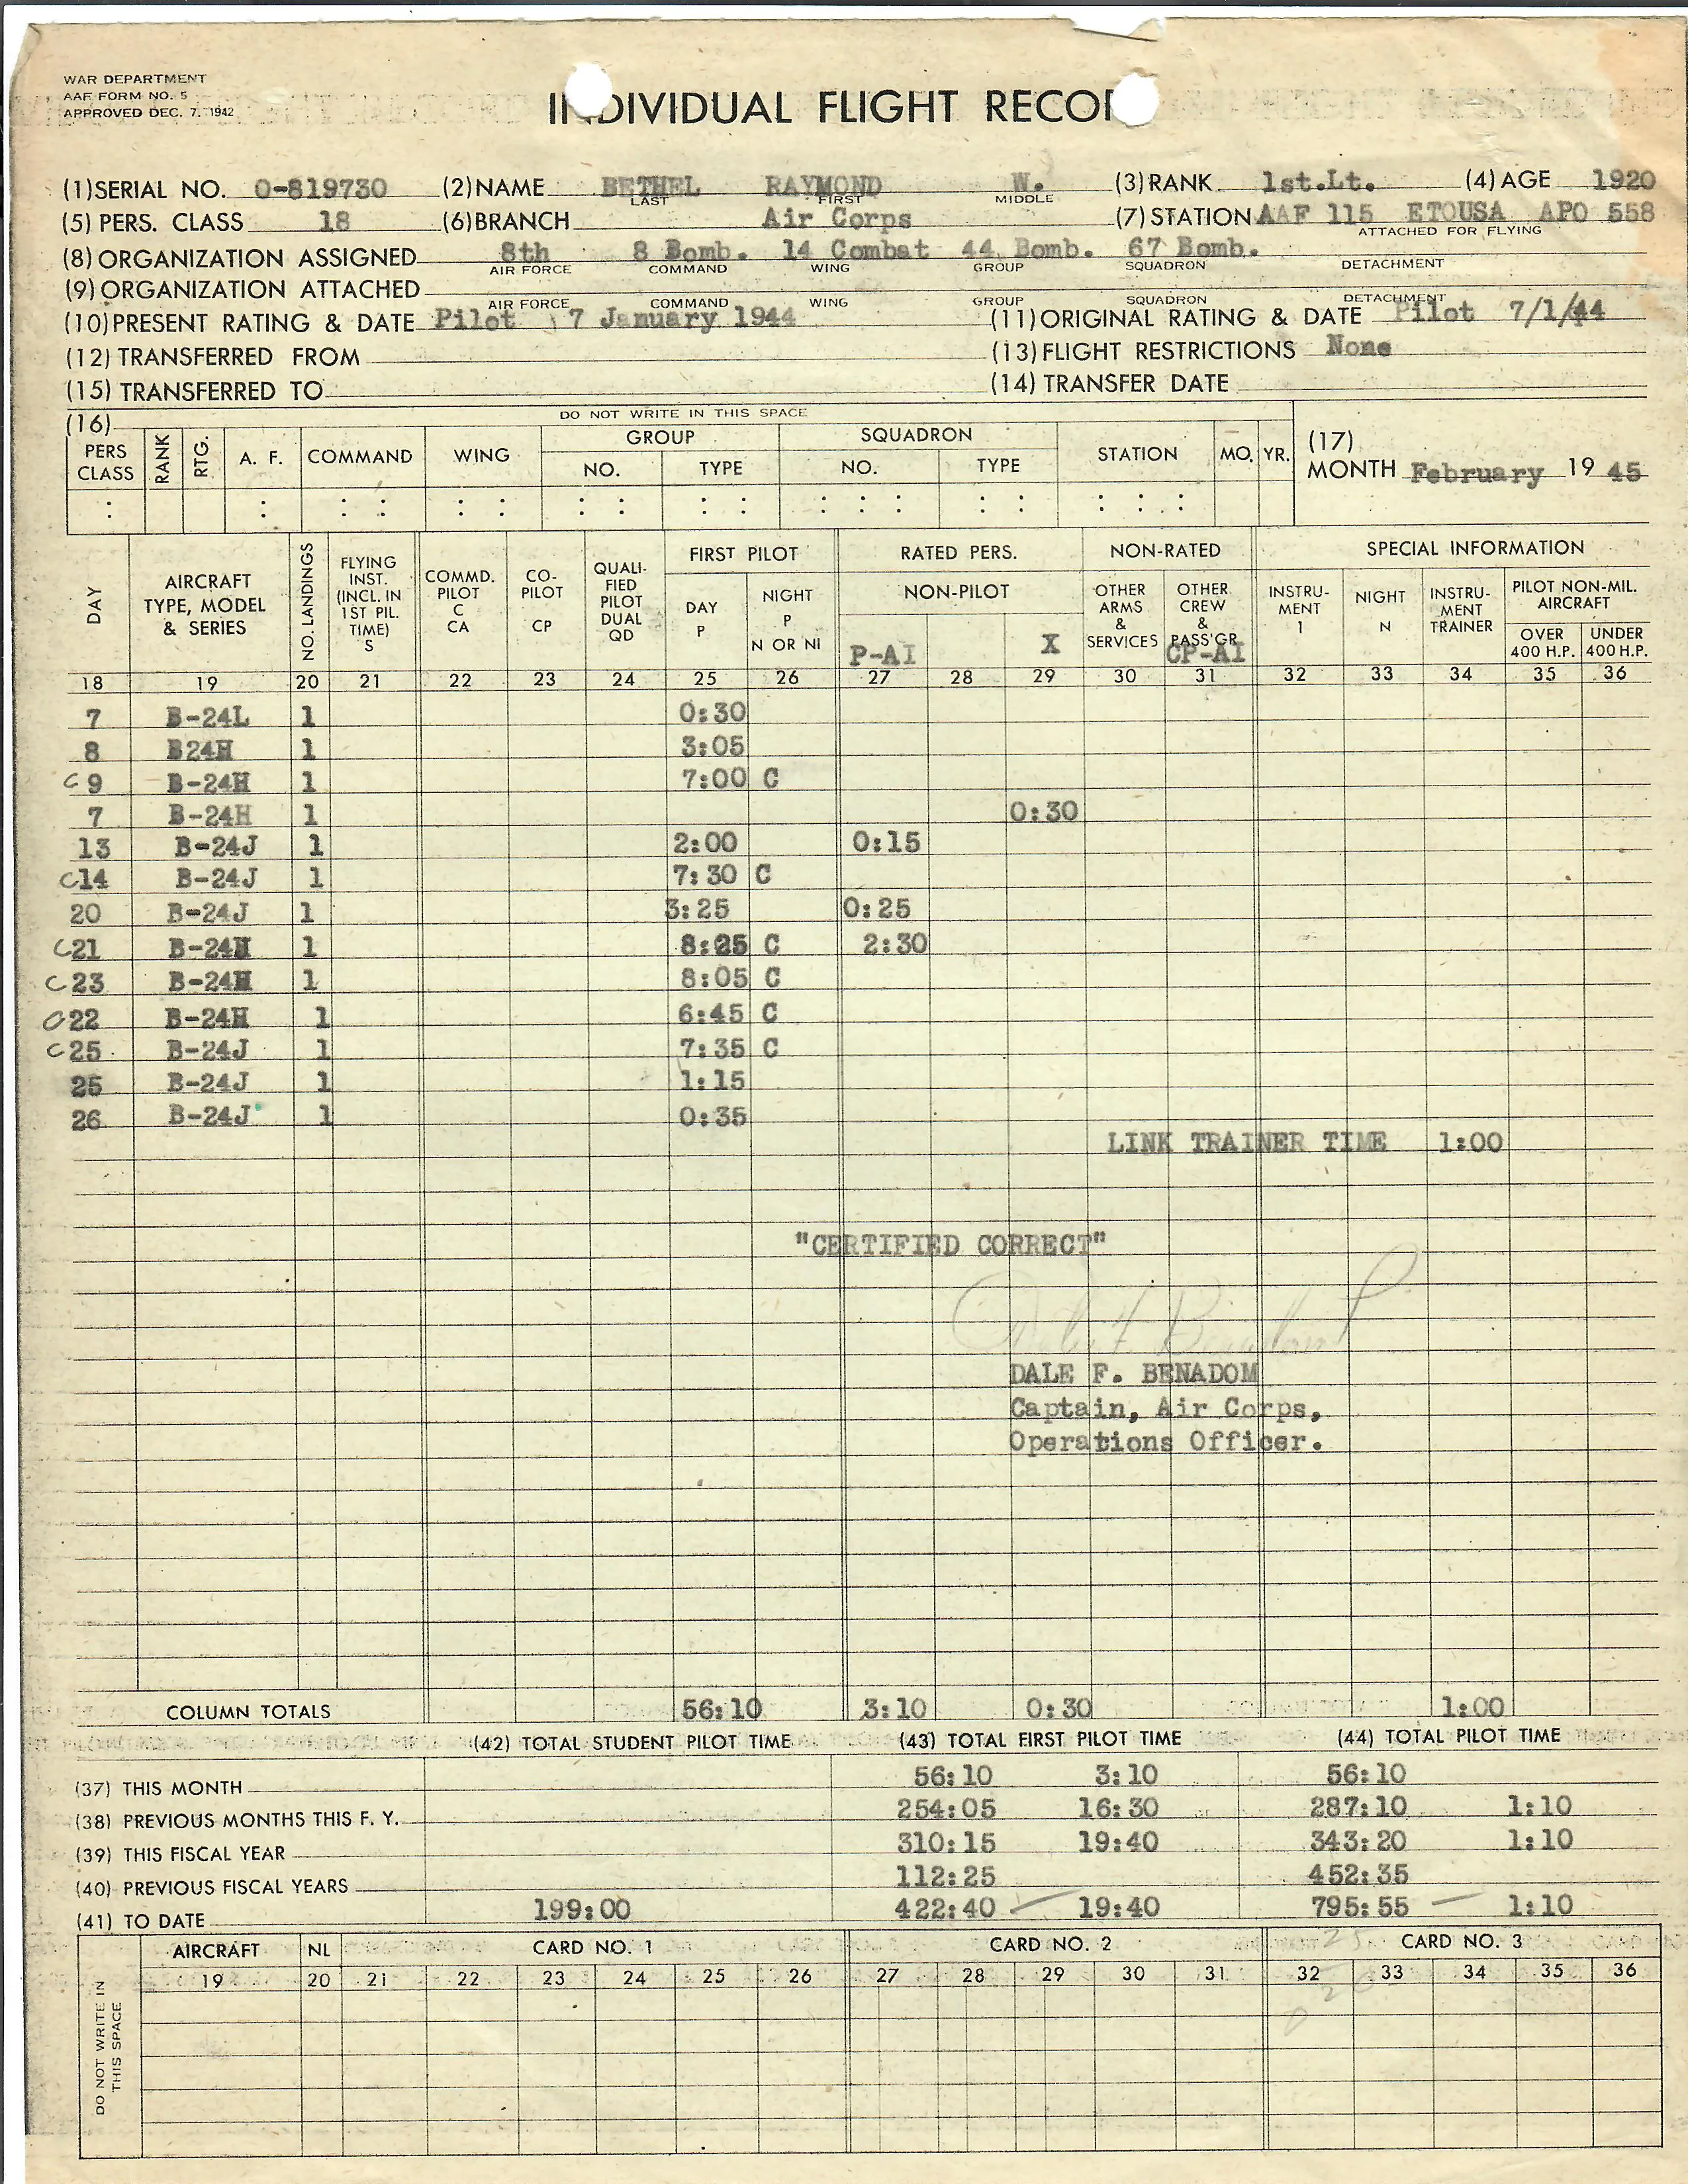 WAR DEPARTMENT
AAF FORM NO. 5
APPROVED DEC. 7, 1942
INDIVIDUAL FLIGHT RECOR
(1) SERIAL NO. 0-819730 (2) NAME BETHEL RAYMOND W. (3) RANK 1st.Lt. (4) AGE 1920
LAST FIRST MIDDLE
(5) PERS. CLASS 18 (6) BRANCH Air Corps (7) STATION AAF 115 ETOUSA APO 558
ATTACHED FOR FLYING
(8) ORGANIZATION ASSIGNED 8th 8 Bomb. 14 Combat 44 Bomb. 67 Bomb.
AIR FORCE COMMAND WING GROUP SQUADRON DETACHMENT
(9) ORGANIZATION ATTACHED
AIR FORCE COMMAND WING GROUP SQUADRON DETACHMENT
(10) PRESENT RATING & DATE Pilot 7 January 1944 (11) ORIGINAL RATING & DATE Pilot 7/1/44
(12) TRANSFERRED FROM (13) FLIGHT RESTRICTIONS None
(15) TRANSFERRED TO (14) TRANSFER DATE
(16) DO NOT WRITE IN THIS SPACE
PERS CLASS RANK RTG. A. F. COMMAND WING GROUP NO. TYPE SQUADRON NO. TYPE STATION MO. YR.
(17) MONTH February 19 45
DAY AIRCRAFT TYPE, MODEL & SERIES NO. LANDINGS FLYING INST. (INCL. IN 1ST PIL. TIME) S COMMD. PILOT C CA CO-PILOT CP QUALI-FIED PILOT DUAL QD FIRST PILOT DAY P NIGHT P N OR NI RATED PERS. NON-PILOT P-AI X NON-RATED OTHER ARMS & SERVICES OTHER CREW & PASS'GR CP-AI SPECIAL INFORMATION INSTRU-MENT 1 NIGHT N INSTRU-MENT TRAINER PILOT NON-MIL. AIRCRAFT OVER 400 H.P. UNDER 400 H.P.
18 19 20 21 22 23 24 25 26 27 28 29 30 31 32 33 34 35 36
7 B-24L 1 0:30
8 B24H 1 3:05
C 9 B-24H 1 7:00 C
7 B-24H 1 0:30
13 B-24J 1 2:00 0:15
C 14 B-24J 1 7:30 C
20 B-24J 1 3:25 0:25
C 21 B-24H 1 8:25 C 2:30
C 23 B-24H 1 8:05 C
C 22 B-24H 1 6:45 C
C 25 B-24J 1 7:35 C
25 B-24J 1 1:15
26 B-24J 1 0:35
LINK TRAINER TIME 1:00
"CERTIFIED CORRECT"
DALE F. BENADOM
Captain, Air Corps,
Operations Officer.
COLUMN TOTALS 56:10 3:10 0:30 1:00
(42) TOTAL STUDENT PILOT TIME (43) TOTAL FIRST PILOT TIME (44) TOTAL PILOT TIME
(37) THIS MONTH 56:10 3:10 56:10
(38) PREVIOUS MONTHS THIS F. Y. 254:05 16:30 287:10 1:10
(39) THIS FISCAL YEAR 310:15 19:40 343:20 1:10
(40) PREVIOUS FISCAL YEARS 112:25 452:35
(41) TO DATE 199:00 422:40 19:40 795:55 1:10
AIRCRAFT NL CARD NO. 1 CARD NO. 2 CARD NO. 3
19 20 21 22 23 24 25 26 27 28 29 30 31 32 33 34 35 36
DO NOT WRITE IN THIS SPACE